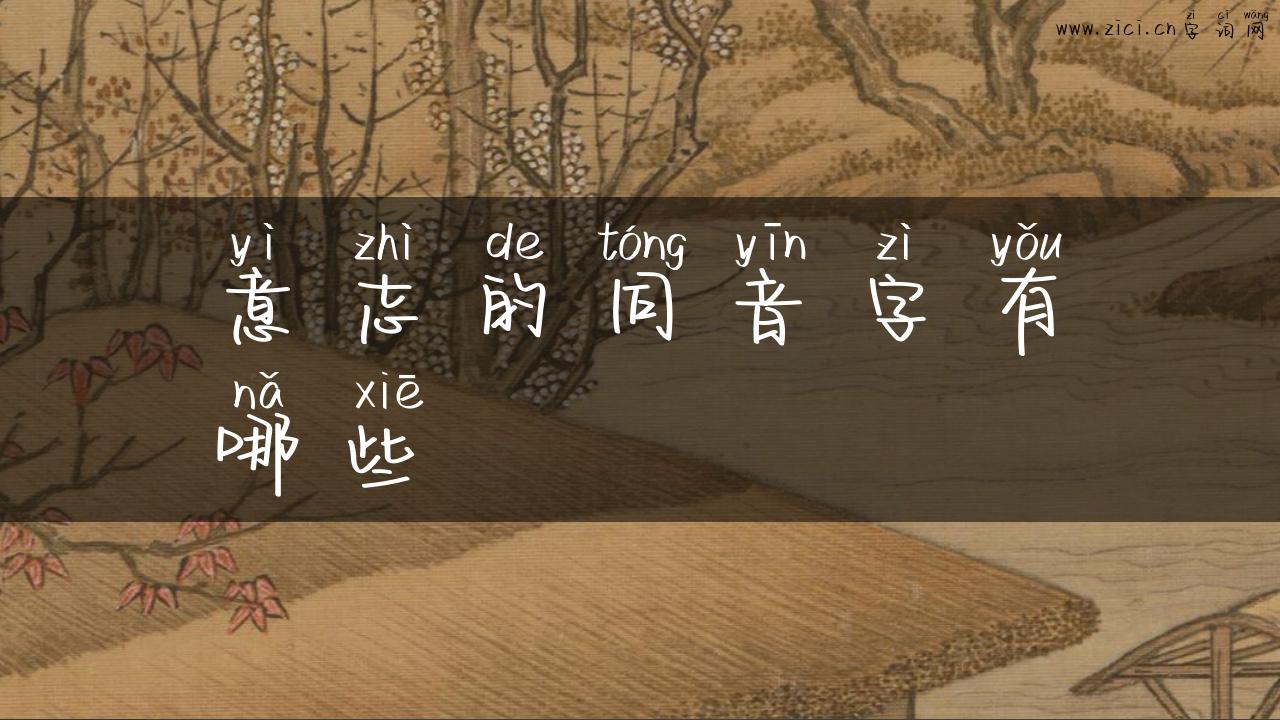 zì cí wǎng
www.zici.cn字词网
yì zhì de tóng yīn zì yǒu
意志的同音字有
nǎ xiē
哪些